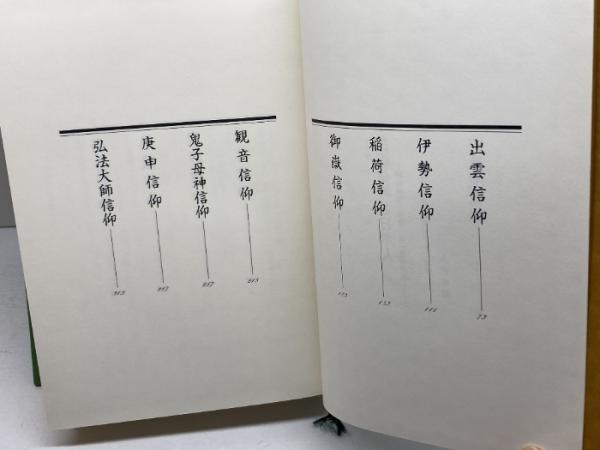 出雲信仰 73
伊勢信仰 111
稲荷信仰 153
御嶽信仰
観音信仰 213
鬼子母神信仰
庚申信仰
弘法大師信仰